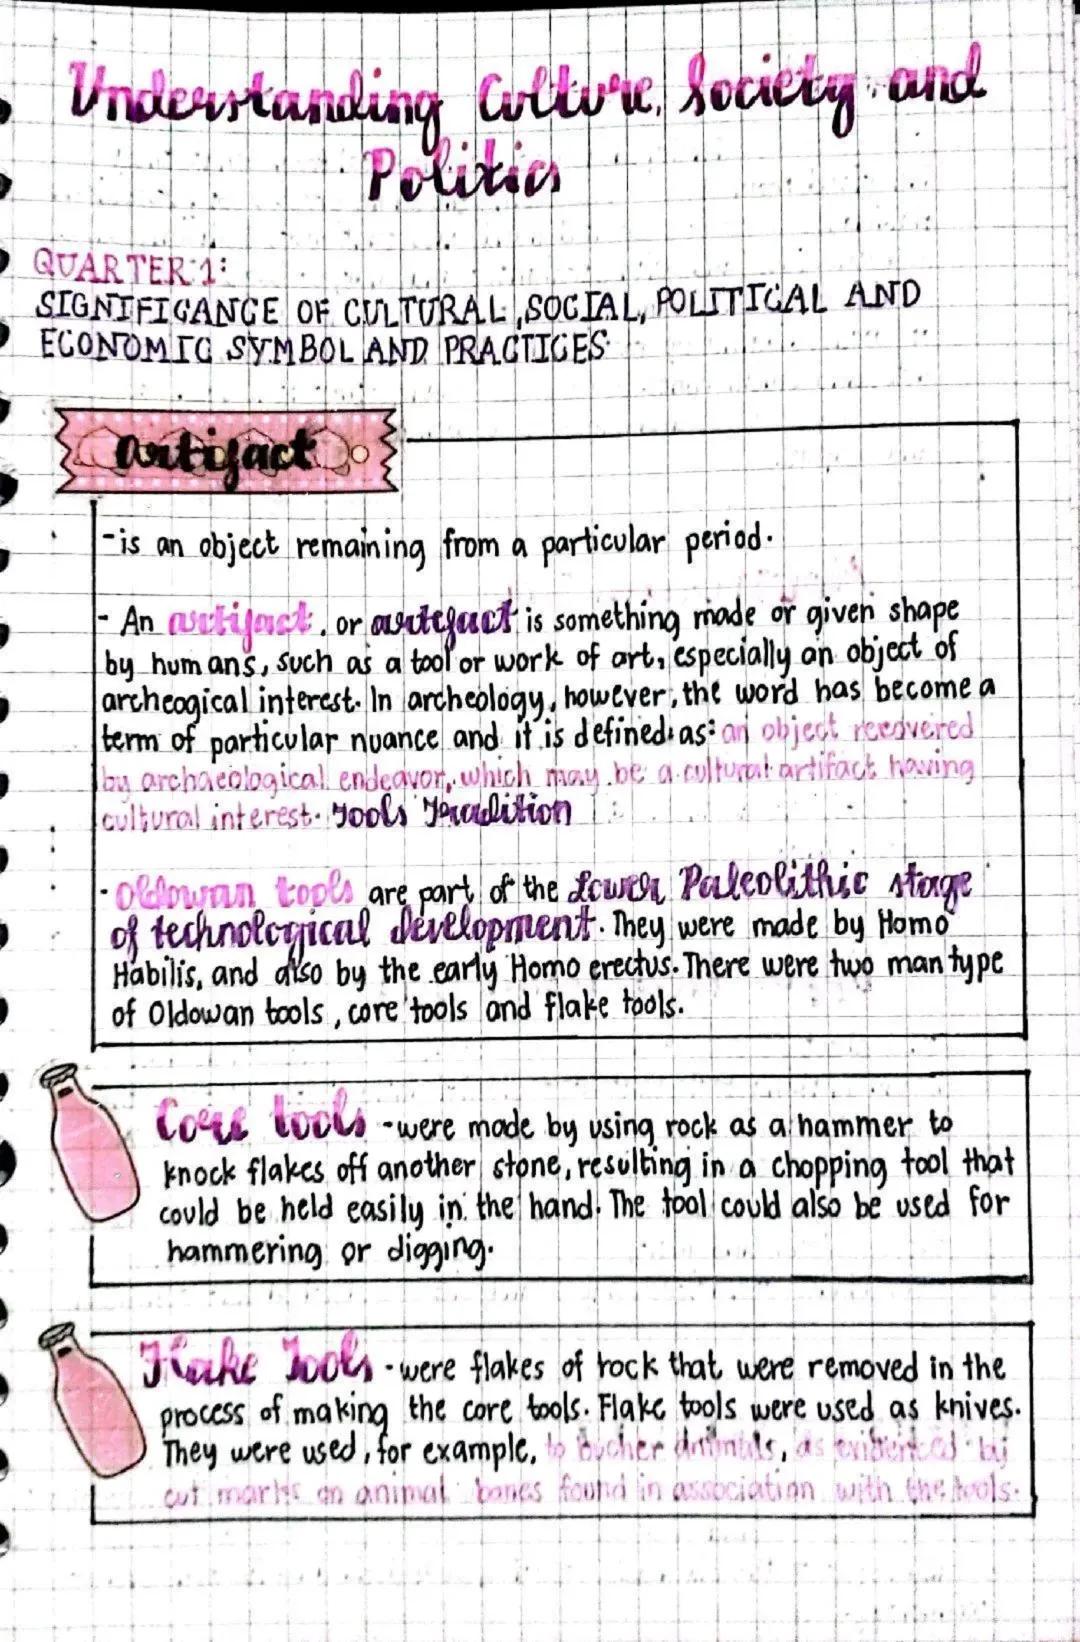 Understanding Culture, Society and
Politics
QUARTER 1:
SIGNIFICANCE OF CULTURAL, SOCIAL, POLITICAL AND
ECONOMIC SYMBOL AND PRACTICES
artifact
- is an object remaining from a particular period.
- An artifact, or artefact is something made or given shape
by humans, such as a tool or work of art, especially an object of
archeogical interest. In archeology, however, the word has become a
term of particular nuance and it is defined as: an object recovered
by archaeological endeavor, which may be a cultural artifact having
cultural interest. Tools Tradition
- Oldowan tools are part of the Lower Paleolithic stage
of technological development. They were made by Homo
Habilis, and also by the early Homo erectus. There were two man type
of Oldowan tools, core tools and flake tools.
Core tools - were made by using rock as a hammer to
knock flakes off another stone, resulting in a chopping tool that
could be held easily in the hand. The tool could also be used for
hammering or digging.
Flake Tools - were flakes of rock that were removed in the
process of making the core tools. Flake tools were used as knives.
They were used, for example, to bucher animals, as evidenced by
cut marks on animal bones found in association with the tools.